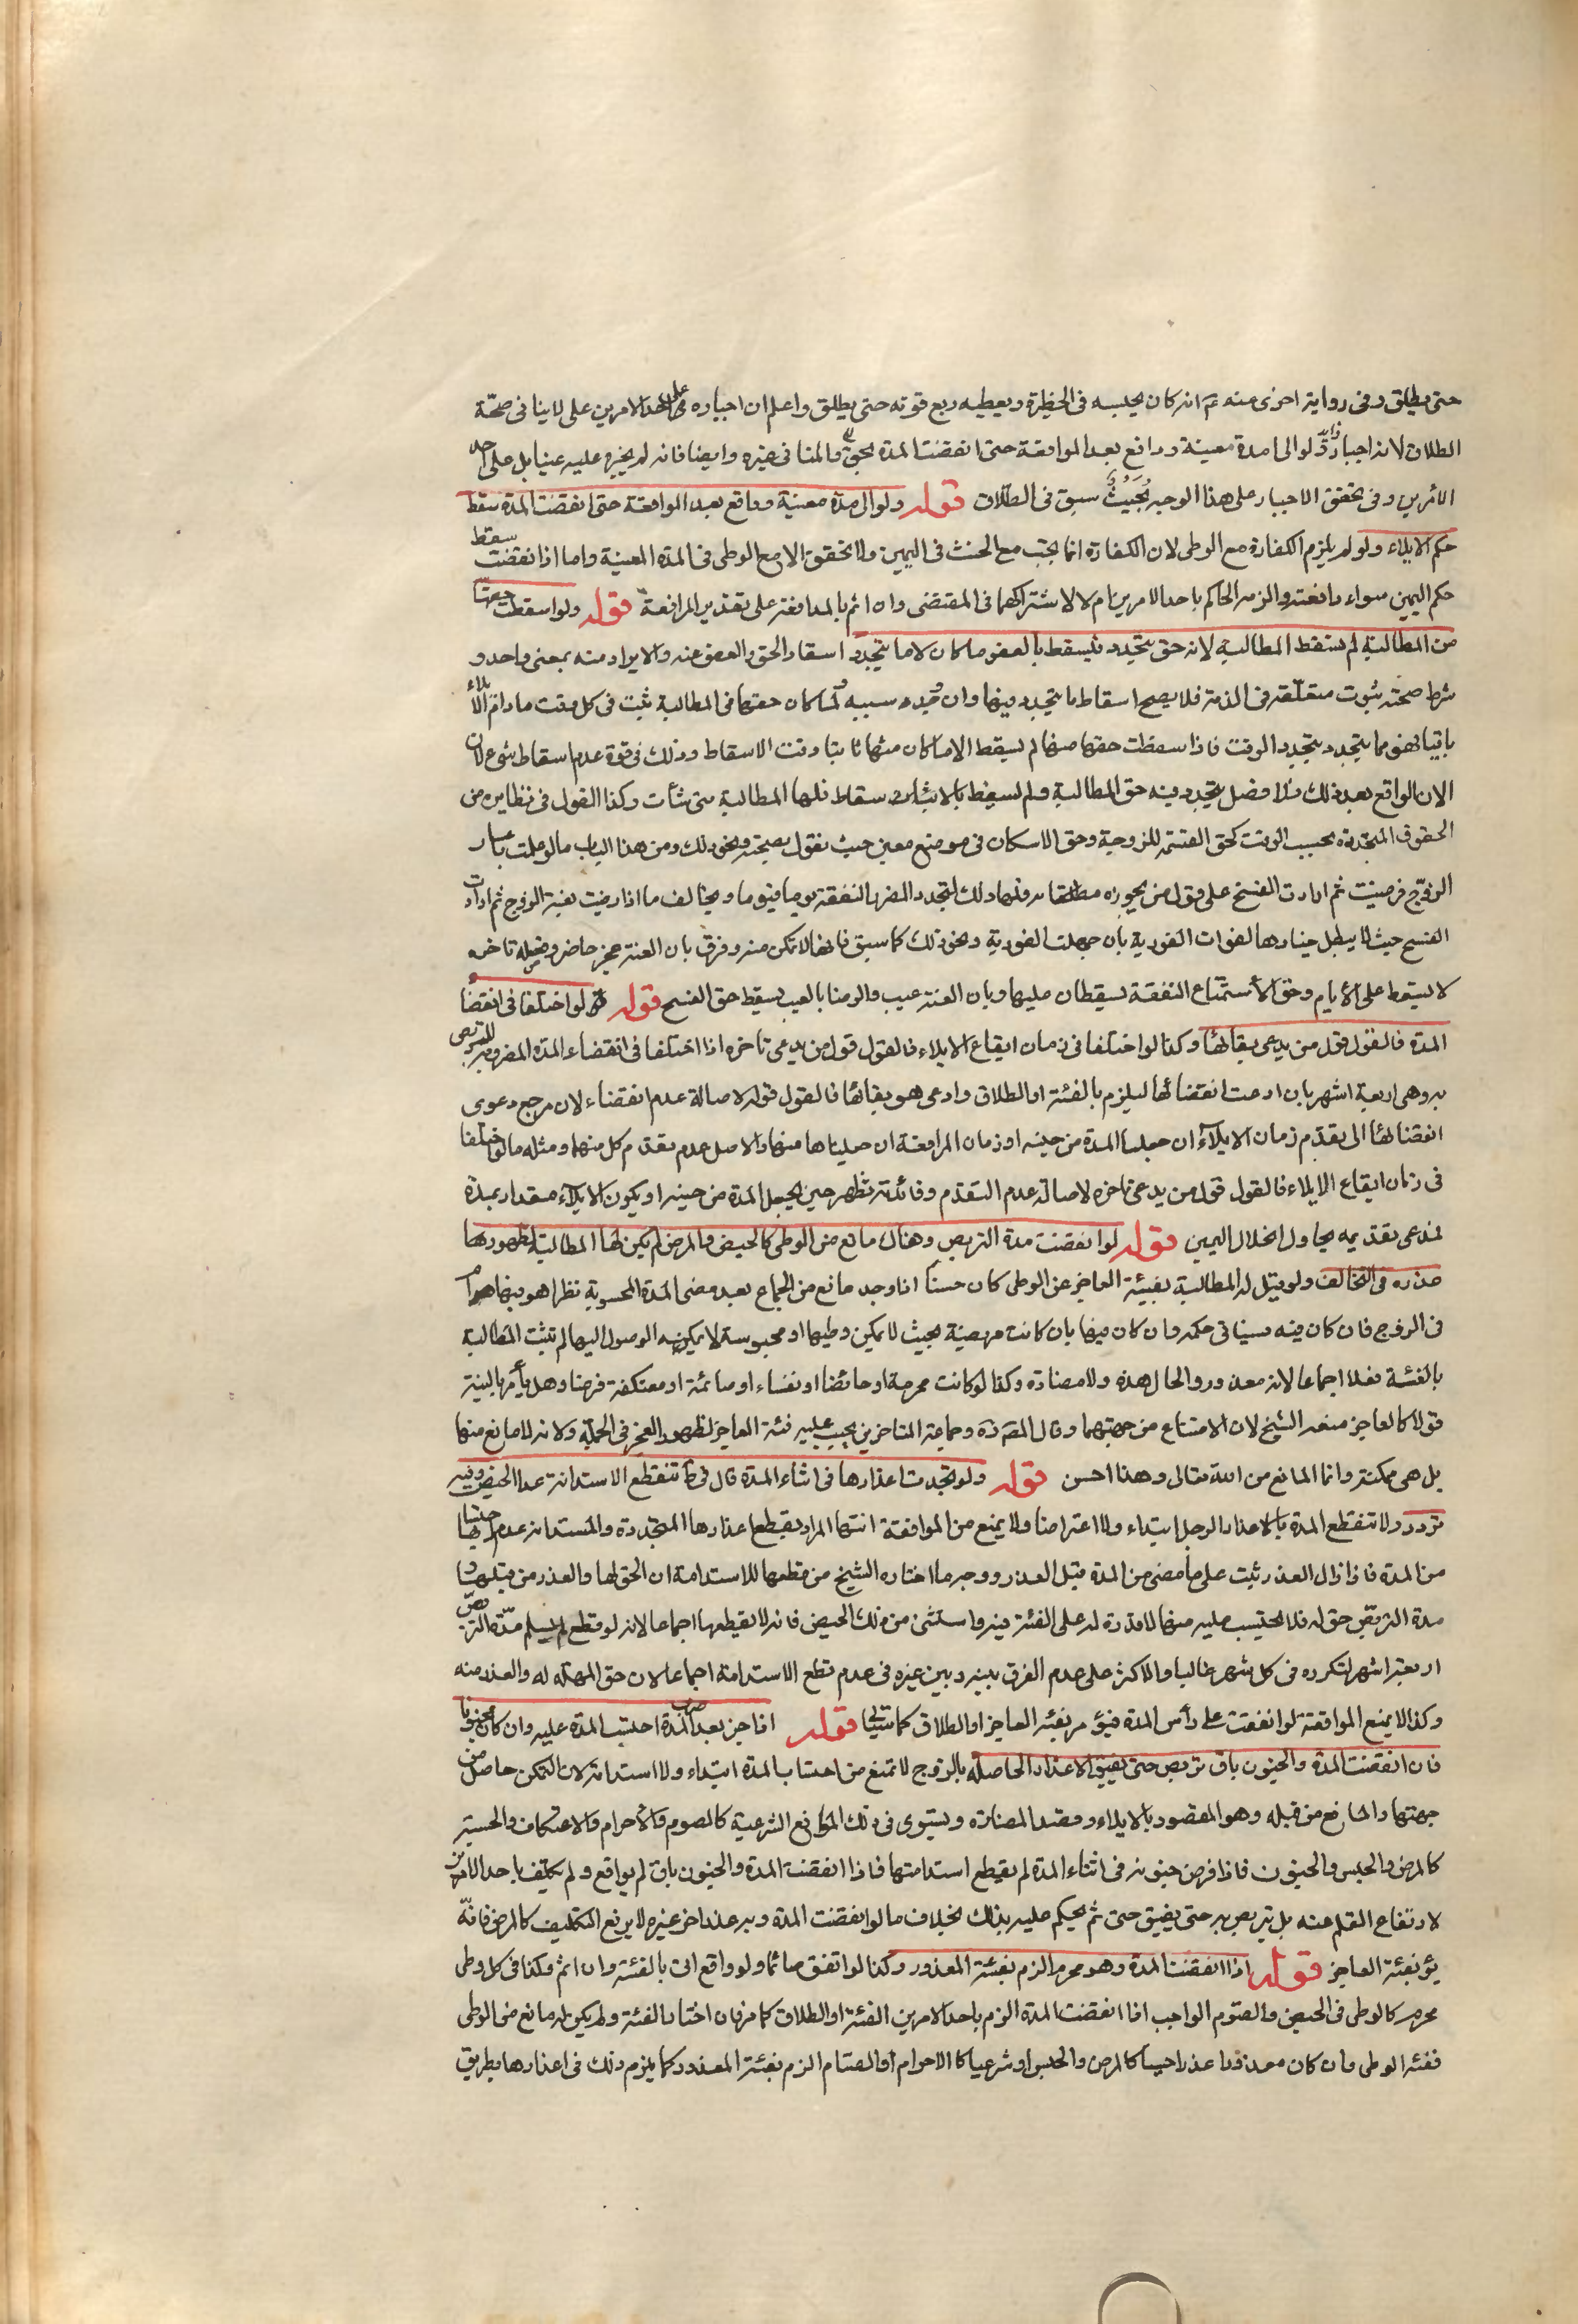 حتى يطلق وفى رواية اخرى عنه ع انه كان يحبسه فى الحظيرة ويعطيه ربع قوته حتى يطلق واعلم ان اجباره على احد الامرين على لاينافى صحّة
الطلاق لانه اجبار لوالى مدة معينة ودافع بعد الموافقة حتى انقضت المدة بحق والمنافى غيره وايضا فانه لم يجبره عليه عينا بل على احد
الأمرين وفى تحقق الاجبار على هذا الوجه بحيث سبق فى الطلاق قوله ولوالى مدة معينة ودافع بعد الموافقة حتى انقضت المدة سقط
حكم الايلاء ولو لم يلزم الكفارة مع الوطى لان الكفارة انما يجب مع الحنث فى اليمين ولا يتحقق الا مع الوطى فى المدة المعينة واما اذا انقضت سقط
حكم اليمين سواء دافعته والزمه الحاكم باحد الامرين ام لا لاشتراكهما فى المقتضى وان اثم بالمدافعة على تقدير المرافعة قوله ولو اسقطت حقها
من المطالبة لم تسقط المطالبة لانه حق يتجدد فيسقط بالعفو ما كان لا ما يتجدد اسقاط الحق والعفو عنه والابراء منه بمعنى واحد و
شرط صحته ثبوت متعلقه فى الذمة فلا يصح اسقاط ما يتجدد فيها وان وجد سببه ولما كان حقها فى المطالبة يثبت فى كل وقت مادام الايلاء
باقيا فهو مما يتجدد بتجدد الوقت فاذا سقطت حقها منها لم يسقط الا ما كان منها ثابتا وقت الاسقاط وذلك فى قوة عدم اسقاط شئ لان
الان الواقع بعد ذلك بلا فصل يتجدد فيه حق المطالبة ولم يسقط بالاسقاط فلها المطالبة متى شأت وكذا القول فى نظايره من
الحقوق المتجددة بحسب الوقت كحق القسمة للزوجية وحق الاسكان فى موضع معين حيث نقول بصحته ونحو ذلك ومن هذا الباب مالو علمت باعسار
الزوج فرضيت ثم ارادت الفسخ على قول من يجوزه مطلقا فلها ذلك لتجدد الضرر بالنفقة يوما فيوما ويخالف ما اذا رضيت بعنة الزوج ثم ارادت
الفسخ حيث لا يبطل خيارها لفوات الفورية بان جهلت الفورية ونحو ذلك كما سبق فانها لا تمكن منه وفرق بان العنة عجز حاضر وخصلة ناجزه
لا يسقط على الأيام وحق الأستمتاع النفقة يسقطان عليها وبان العنة عيب والرضا بالعيب يسقط حق الفسخ قوله لو اختلفا فى انقضا
المدة فالقول قول من يدعى بقائها وكذا لو اختلفا فى زمان ايقاع الايلاء فالقول قول من يدعى تاخره اذا اختلفا فى انقضاء المدة المضروبة للتربص
به وهى اربعة اشهر بان ادعت انقضائها ليلزم بالفئة او الطلاق وادعى هو بقائها فالقول قوله لاصالة عدم انقضاء لان مرجع دعوى
انقضائها الى تقدّم زمان الايلاء ان جعلنا المدة من حينه او زمان المرافعة ان جعلناها منها والاصل عدم تقدّم كل منهما ومثله مالو اختلفا
فى زمان ايقاع الايلاء فالقول قول من يدعى تاخره لاصالة عدم التقدّم وفائدته تظهر حين يجعل المدة من حينه او يكون الايلاء مقدار بمدة
فمدعى تقديمه يحاول انحلال اليمين قوله لو انقضت مدة التربص وهناك مانع من الوطى كالحيض والمرض لم يكن لها المطالبة لظهور
عذره فى التخالف ولو قيل له المطالبة بفيئة العاجز عن الوطى كان حسنا اذا وجد مانع من الجماع بعد مضى المدة المحسوبة نظرا هو فيها ام
فى الزوج فان كان فيه سياتى حكمه وان كان فيها بان كانت مريضة بحيث لا يمكن وطيها او محبوسة لا يمكنه الوصول اليها لم تثبت المطالبة
بالفئة فعلا اجماعا لانه معذور والحال هذه ولا مضارة وكذا لو كانت محرمة او حائضا او نفساء او صائمة او معتكفة فرضا وهل يأمر بالفيئة
قولا كالعاجز منعه الشيخ لان الامتناع من جهتهما وقال المصه ره وجماعة المتاخرين يجب عليه فئة العاجز لظهور العجز فى الجملة ولانه لا مانع منها
بل هى ممكنة وانما المانع من الله تعالى وهذا احسن قوله ولو تجددت اعذارها فى اثناء المدة قال فى ط تنقطع الاستدامة عدا الحيض وفيه
تردد ولا تنقطع المدة بالاعذار الرجل ابتداء ولا اعتراضا ولا يمنع من الموافقة انتهائها المراد بقطع اعذارها المتجددة والمستدامة عدم احتسابها
من المدة فاذا زال العذر ثبت على ما مضى من المدة قبل العذر ووجه ما اختاره الشيخ من قطعها للاستدامة ان الحق لها والعذر من قبلها و
مدة التربص حق له فلا يحتسب عليه منها لا قدرة له على الفئة فيه واستثنى من ذلك الحيض فانه لا يقطعها اجماعا لانه لو قطع لم يسلم مدّة التربص
اربعة اشهر لتكرره فى كل شهر غالبا والاكثر على عدم الفرق بينه وبين غيره فى عدم قطع الاستدامة اجماعا لان حق المهلة له والعذر منه
وكذا لا يمنع الموافقة لو انفقت على رأس المدة فيؤمر بفئة العاجز او الطلاق كما سيأتى قوله اذا جن بعد ضرب المدة احتسب المدة عليه وان كان مجنونا
فان انقضت المدة والجنون باق تربص حتى يفيق الاعذار الحاصلة بالزوج لا تمنع من احتساب المدة ابتداء ولا استدامة لان التمكن حاصل من
جهتها والمانع من قبله وهو المقصود بالايلاء وقصد المضارة ويستوى فى ذلك الموانع الشرعية كالصوم والأحرام والاعتكاف والحسية
كالمرض والحبس والجنون فاذا فرض جنونه فى اثناء المدة لم يقطع استدامتها فاذا انقضت المدة والجنون باق لم يواقع ولم يكلف باحد الامرين
لارتفاع القلم عنه بل تربص به حتى يفيق حتى ثم يحكم عليه بذلك بخلاف ما لو انقضت المدة وبه عذر اخر غيره لا يرفع التكليف كالمرض فانّه
يؤ بفئة العاجز قوله اذا انقضت المدة وهو محرم الزم بفئة المعذور وكذا لو اتفق صائما ولو واقع اتى بالفئة وان اثم وكذا فى كل وطى
محرم كالوطى فى الحيض والصوم الواجب اذا انقضت المدة الزم باحد الامرين الفئة او الطلاق كما مر فان اختار الفئة ولم يكن له مانع من الوطى
ففئه الوطى وان كان معذورا عذرا حسيا كالمرض والحبس او شرعيا كالاحرام او الصيام الزم بفئة المعذور كما يلزم ذلك فى اعذارها بطريق